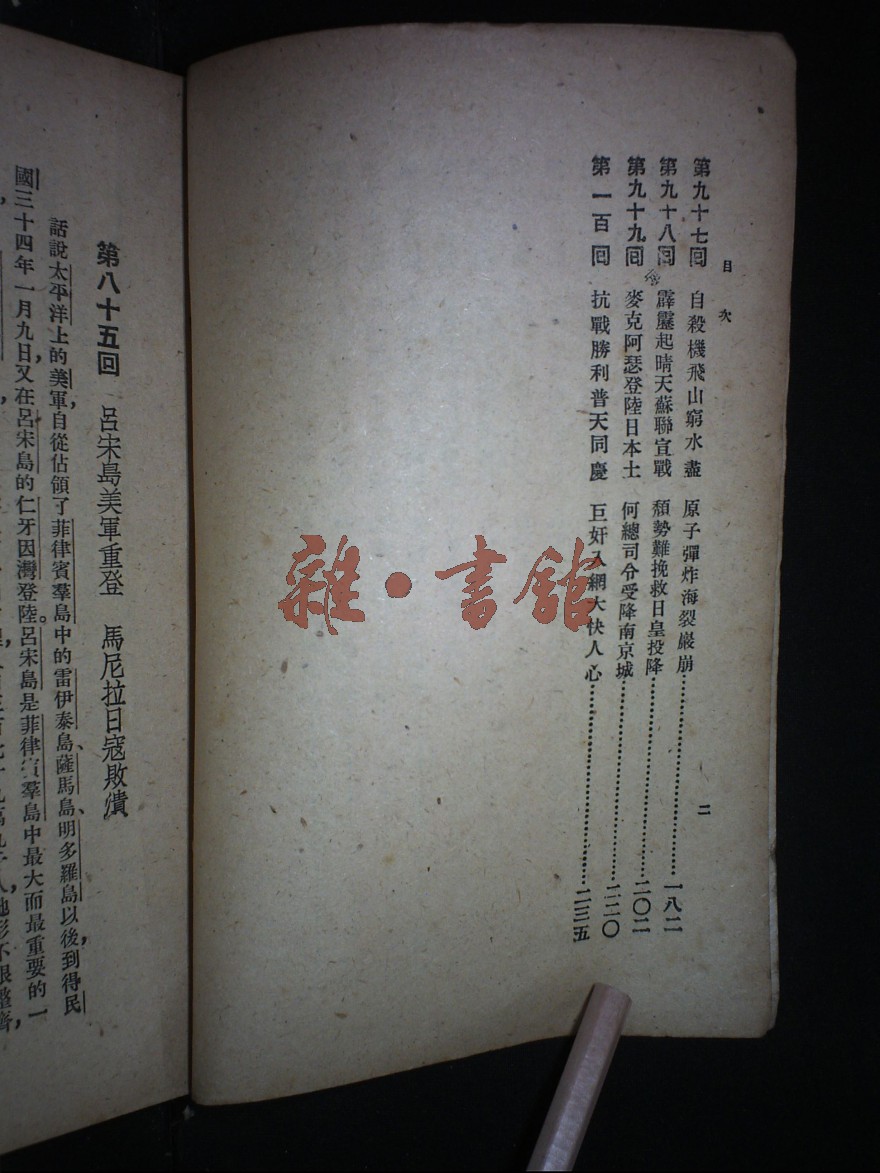 目次
第九十七回 自殺機飛山窮水盡 原子彈炸海裂巖崩……一八二
第九十八回 霹靂起晴天蘇聯宣戰 頹勢難挽救日皇投降……二〇二
第九十九回 麥克阿瑟登陸日本土 何總司令受降南京城……二二〇
第一百回 抗戰勝利普天同慶 巨奸入網大快人心……二三五
二
雜·書館
第八十五回 呂宋島美軍重登 馬尼拉日寇敗潰
話說太平洋上的美軍,自從佔領了菲律賓羣島中的雷伊泰島、薩馬島、明多羅島以後,到得民
國三十四年一月九日,又在呂宋島的仁牙因灣登陸。呂宋島是菲律賓羣島中最大而最重要的一